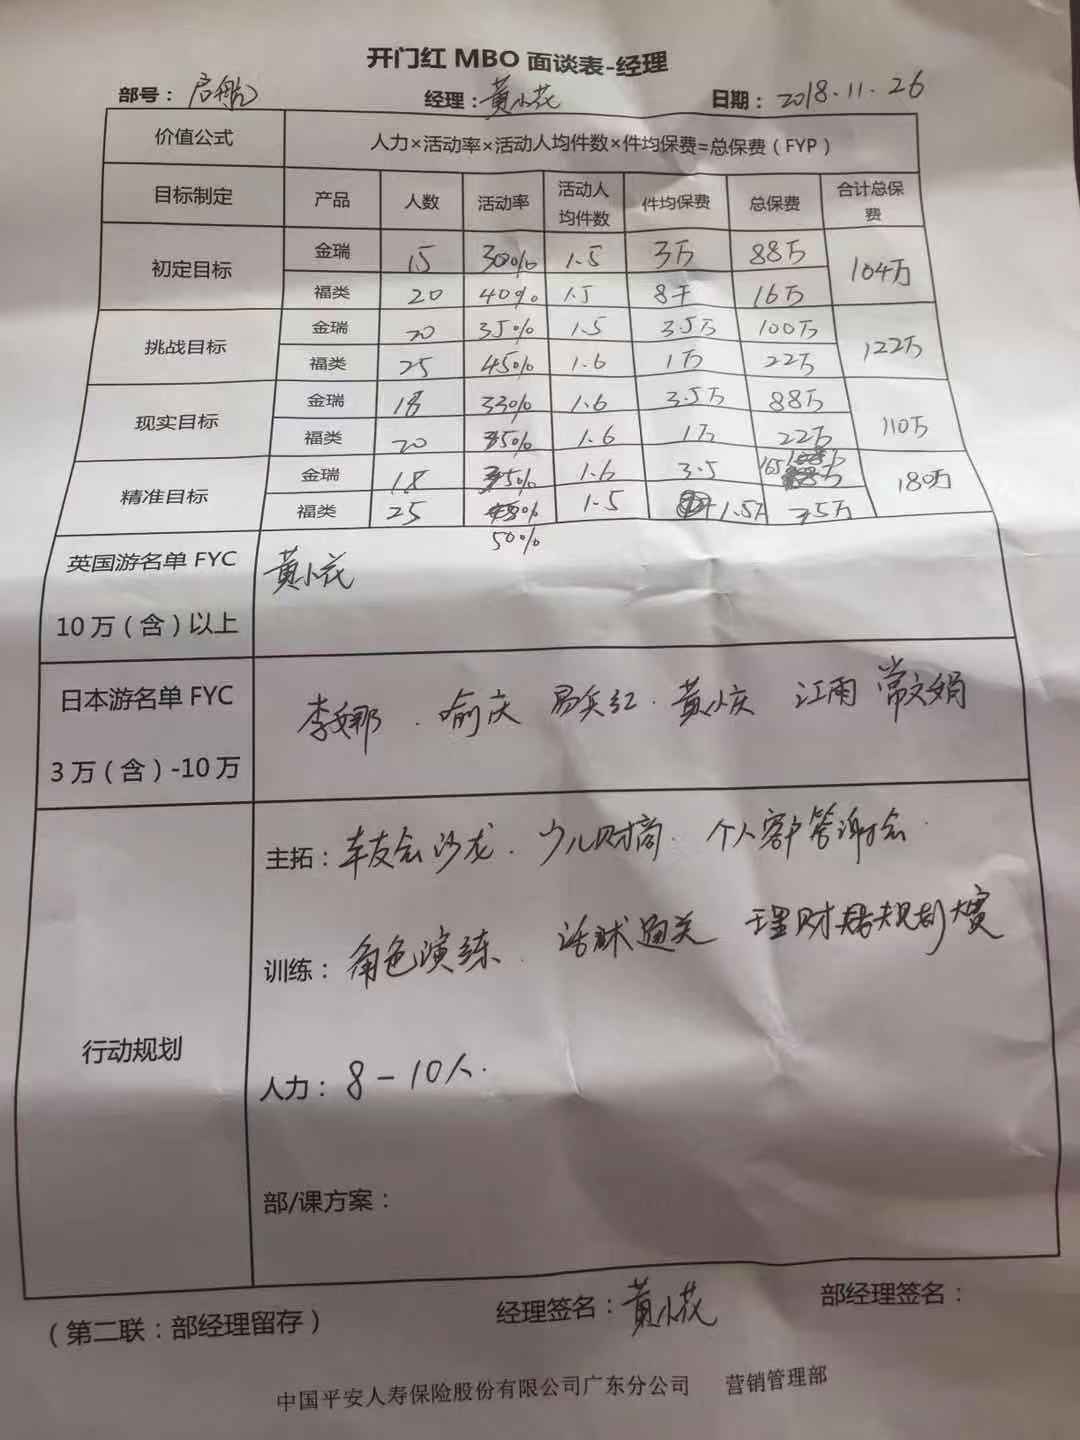 开门红 MBO 面谈表-经理
部号：启航 经理：黄小花 日期：2018.11.26
价值公式 人力×活动率×活动人均件数×件均保费=总保费（FYP）
目标制定 产品 人数 活动率 活动人均件数 件均保费 总保费 合计总保费
初定目标 金瑞 15 30% 1.5 3万 88万 104万
福类 20 40% 1.5 8千 16万
挑战目标 金瑞 20 35% 1.5 3.5万 100万 122万
福类 25 45% 1.6 1万 22万
现实目标 金瑞 18 33% 1.6 3.5万 88万 110万
福类 20 35% 1.6 1万 22万
精准目标 金瑞 18 35% 1.6 3.5 165 180万
福类 25 50% 1.5 1.5万 35万
英国游名单 FYC 黄小花
10 万（含）以上
日本游名单 FYC 李娜 . 喻庆 易兵红 . 黄小庆 江雨 常文娟
3 万（含）-10 万
行动规划
主拓：车友会沙龙 . 少儿财商 . 个人客户答谢会 .
训练：角色演练 . 话术通关 理财规划大赛
人力：8-10人.
部/课方案：
（第二联：部经理留存） 经理签名：黄小花 部经理签名：
中国平安人寿保险股份有限公司广东分公司 营销管理部